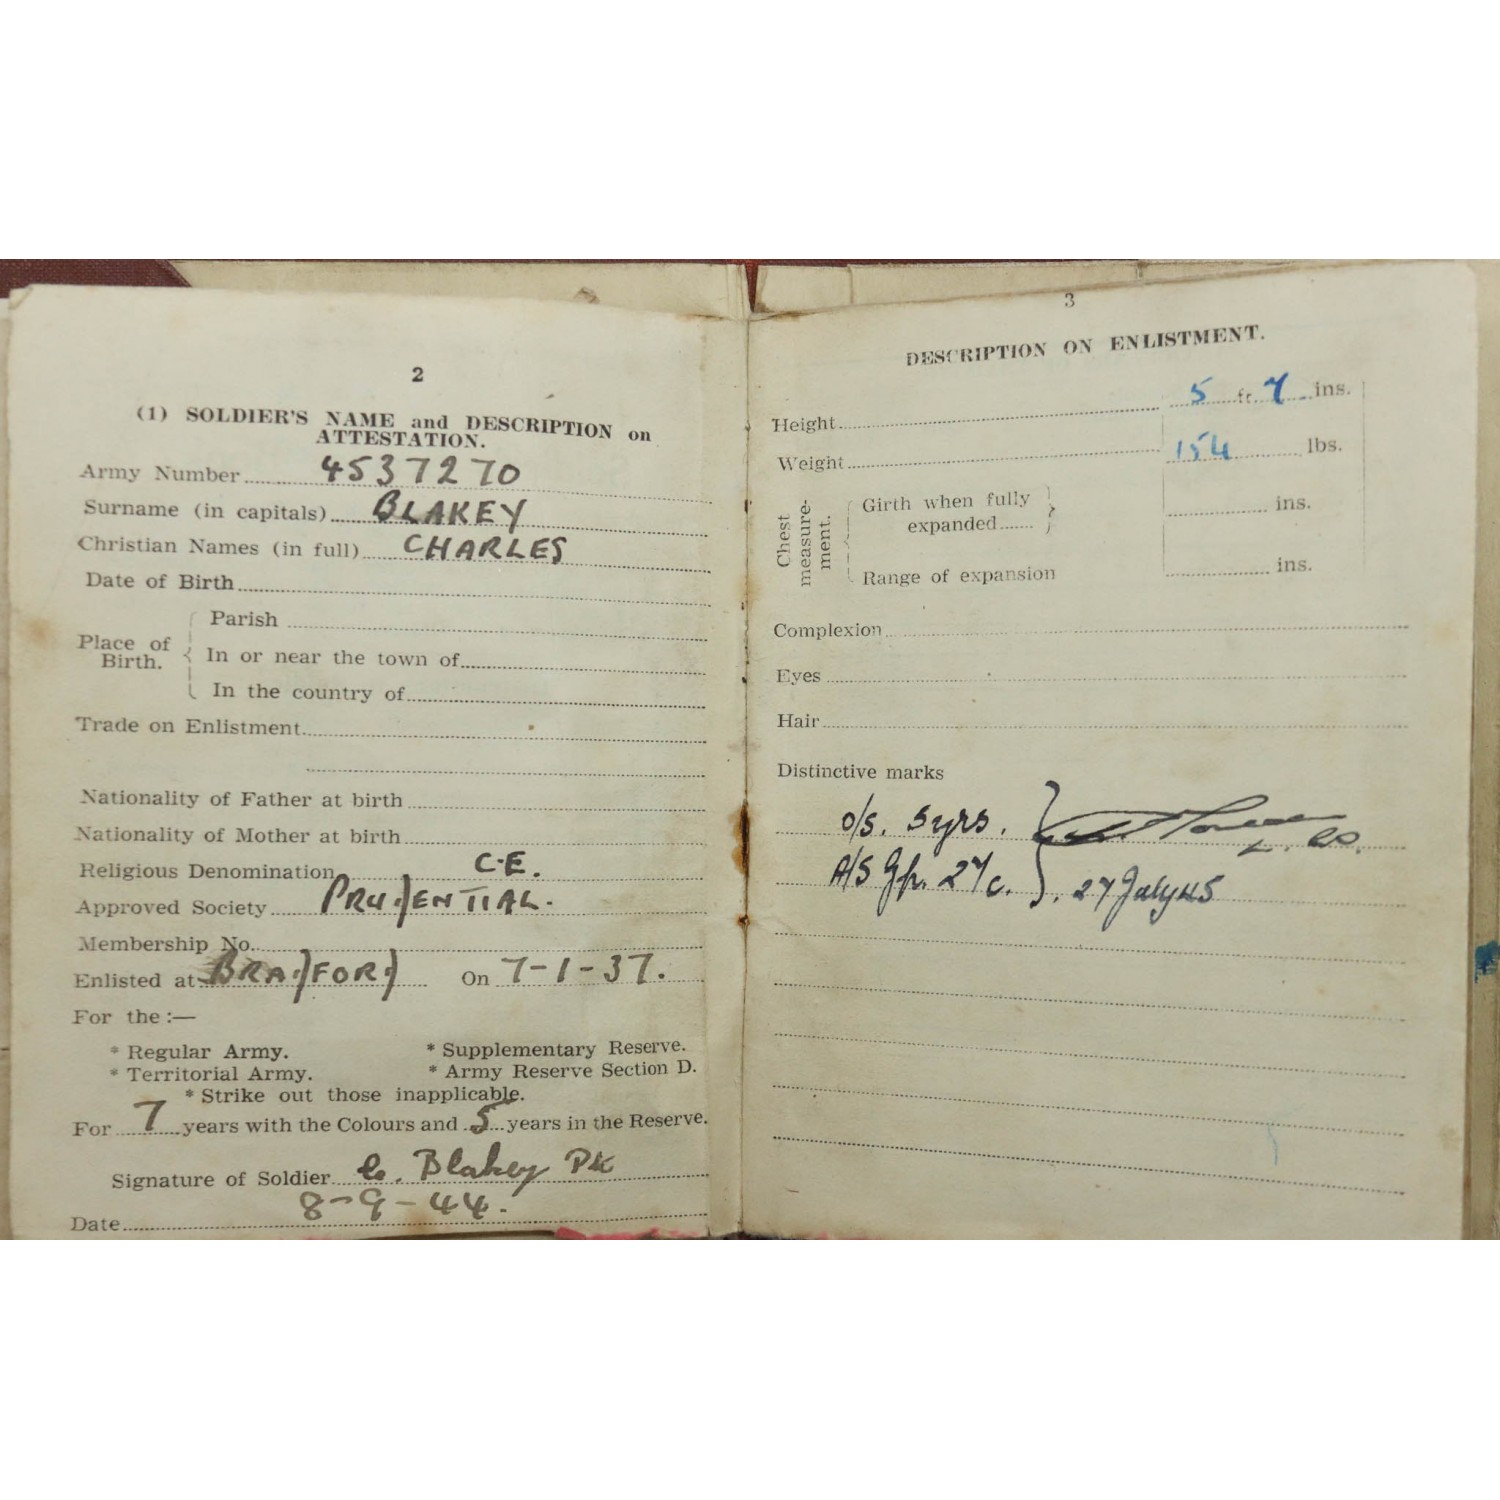 2
(1) SOLDIER'S NAME and DESCRIPTION on
ATTESTATION.
Army Number 4537270
Surname (in capitals) BLAKEY
Christian Names (in full) CHARLES
Date of Birth
Place of Birth.
Parish
In or near the town of
In the country of
Trade on Enlistment
Nationality of Father at birth
Nationality of Mother at birth
Religious Denomination C.E.
Approved Society PRUDENTIAL.
Membership No.
Enlisted at BRADFORD On 7-1-37.
For the :—
* Regular Army. * Supplementary Reserve.
* Territorial Army. * Army Reserve Section D.
* Strike out those inapplicable.
For 7 years with the Colours and 5 years in the Reserve.
Signature of Soldier C. Blakey
Date 8-9-44.
3
DESCRIPTION ON ENLISTMENT.
Height 5 ft. 7 ins.
Weight 154 lbs.
Chest measure-ment.
Girth when fully
expanded ins.
Range of expansion ins.
Complexion
Eyes
Hair
Distinctive marks
O/S. 5 yrs.
A/S Gp. 27c. 27 July 45